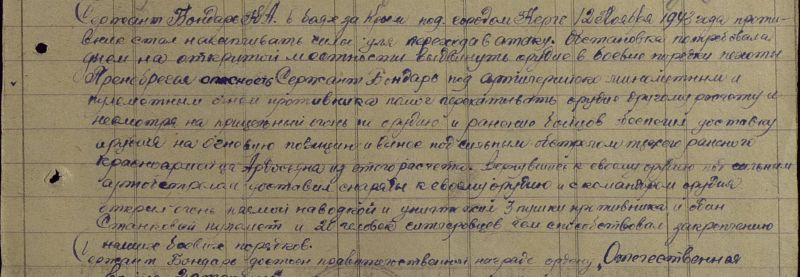 Сержант Бондарь А.А. в боях за Крым под городом Керчь 12 Ноября 1943 года проти-
вник стал накапливать силы для перехода в атаку. Обстановка потребовала
днем на открытой местности выдвинуть орудие в боевые порядки пехоты
Пренебрегая опасность Сержант Бондарь под артилерийско минометным и
пулеметным огнем противника помог перекатывать орудие другому расчету и
несмотря на прицельный огонь по орудию и ранению бойцов доставку
орудия на основную позицию и вынес под сильным обстрелом тяжело раненого
красноармейца из этого расчета. Вернувшись к своему орудию под сильным
артобстрелом доставил снаряды к своему орудию и с командиром орудия
открыл огонь прямой наводкой и уничтожил 3 пушки противника и один
Станковый пулемет и 20 человек гитлеровцев чем способствовал закреплению
наших боевых порядков.
Сержант Бондарь достоин правительственной награде ордену „Отечественная